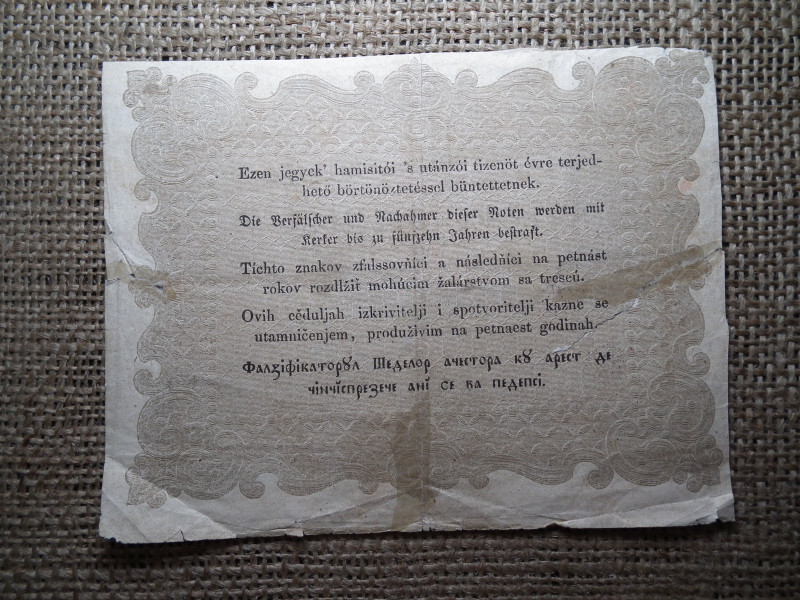 Ezen jegyek' hamisitói 's utánzói tizenöt évre terjed-
hető börtönöztetéssel büntettetnek.
Die Verfälscher und Nachahmer dieser Noten werden mit
Kerker bis zu fünfzehn Jahren bestraft.
Tíchto znakov zfalssovňíci a následňíci na petnást
rokov rozdlžiť mohúcim žalárstvom sa trescú.
Ovih cěduljah izkrivitelji i spotvoritelji kazne se
utamničenjem, produživim na petnaest godinah.
Фалзіфікаторꙋл Шеделор ачестора кꙋ арест де
чінчіспрезече ані се ва педепсі.